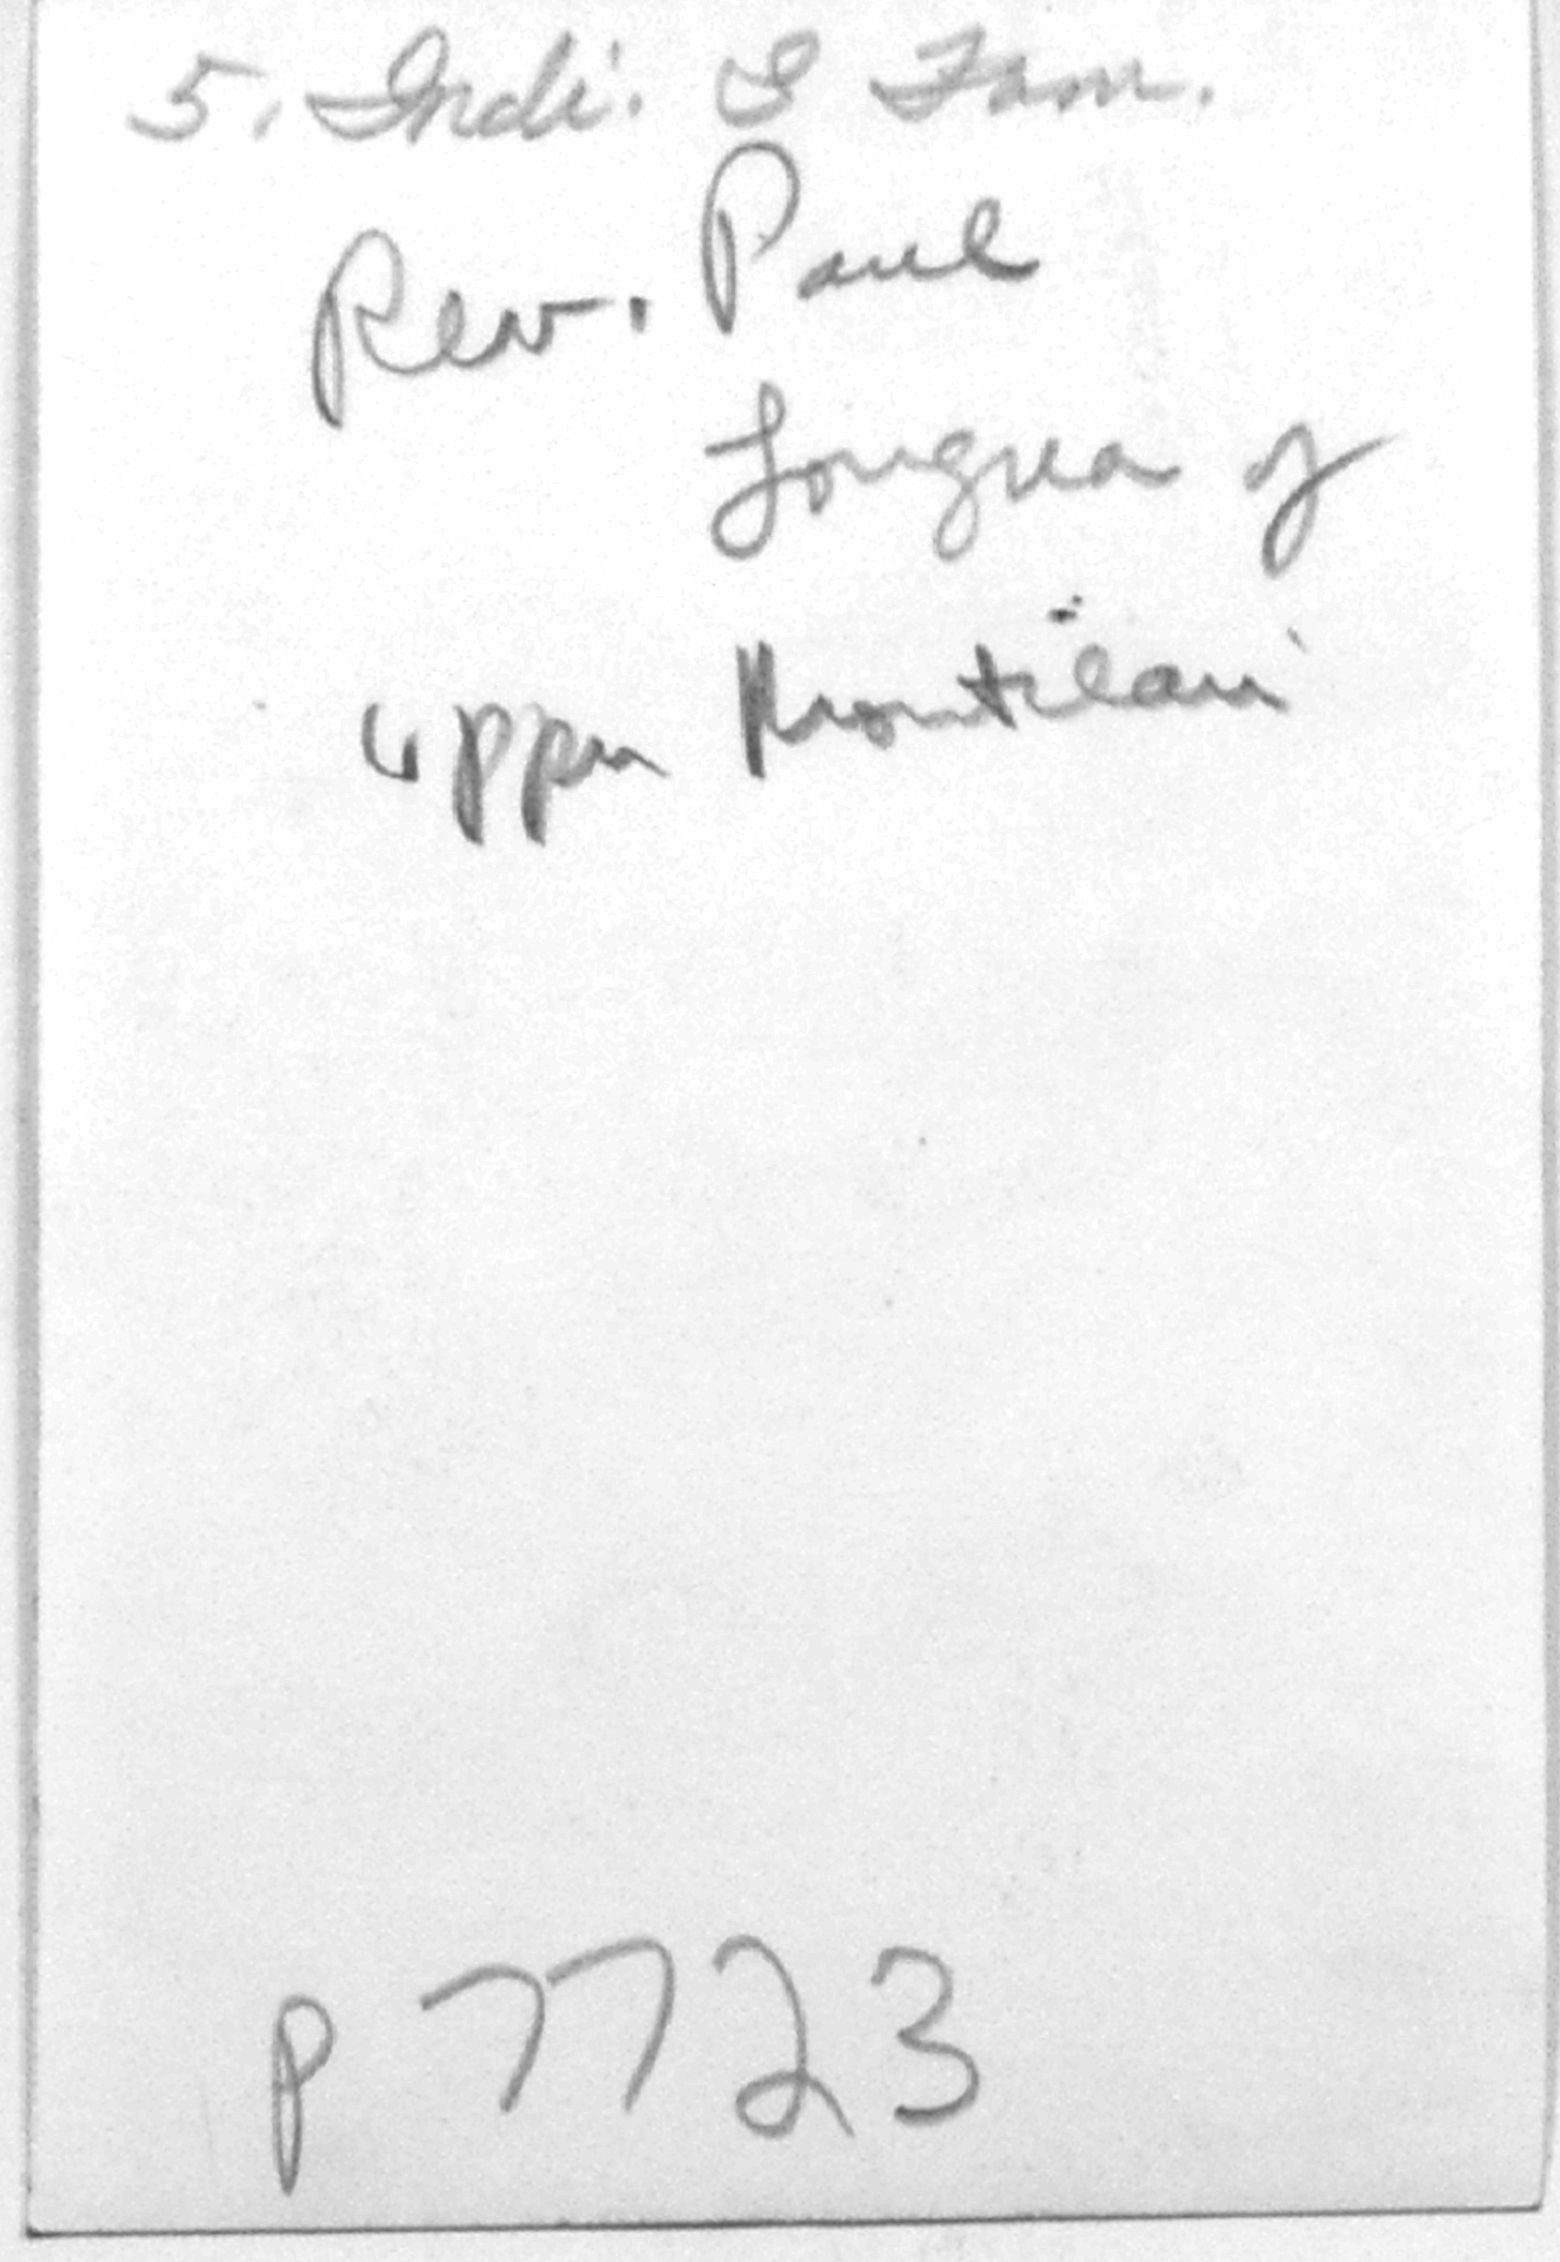 5. Indi. & Fam.
Rev. Paul
Longua of
upper
p 7723